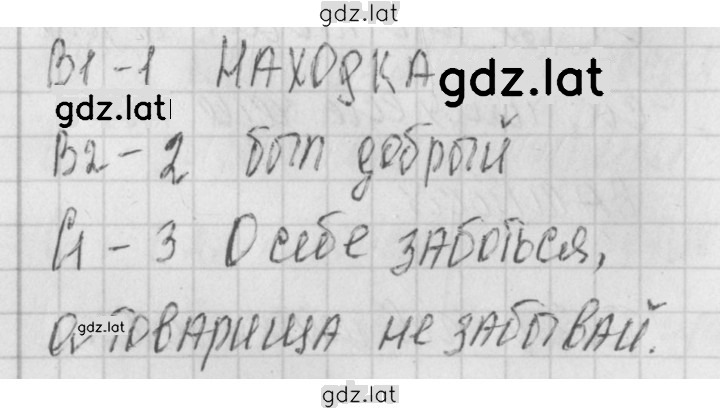 gdz.lat
В1-1 НАХОДКА gdz.lat
gdz.lat
В2-2 был добрый
С1-3 О себе заботься,
gdz.lat
а товарища не забывай.
gdz.lat